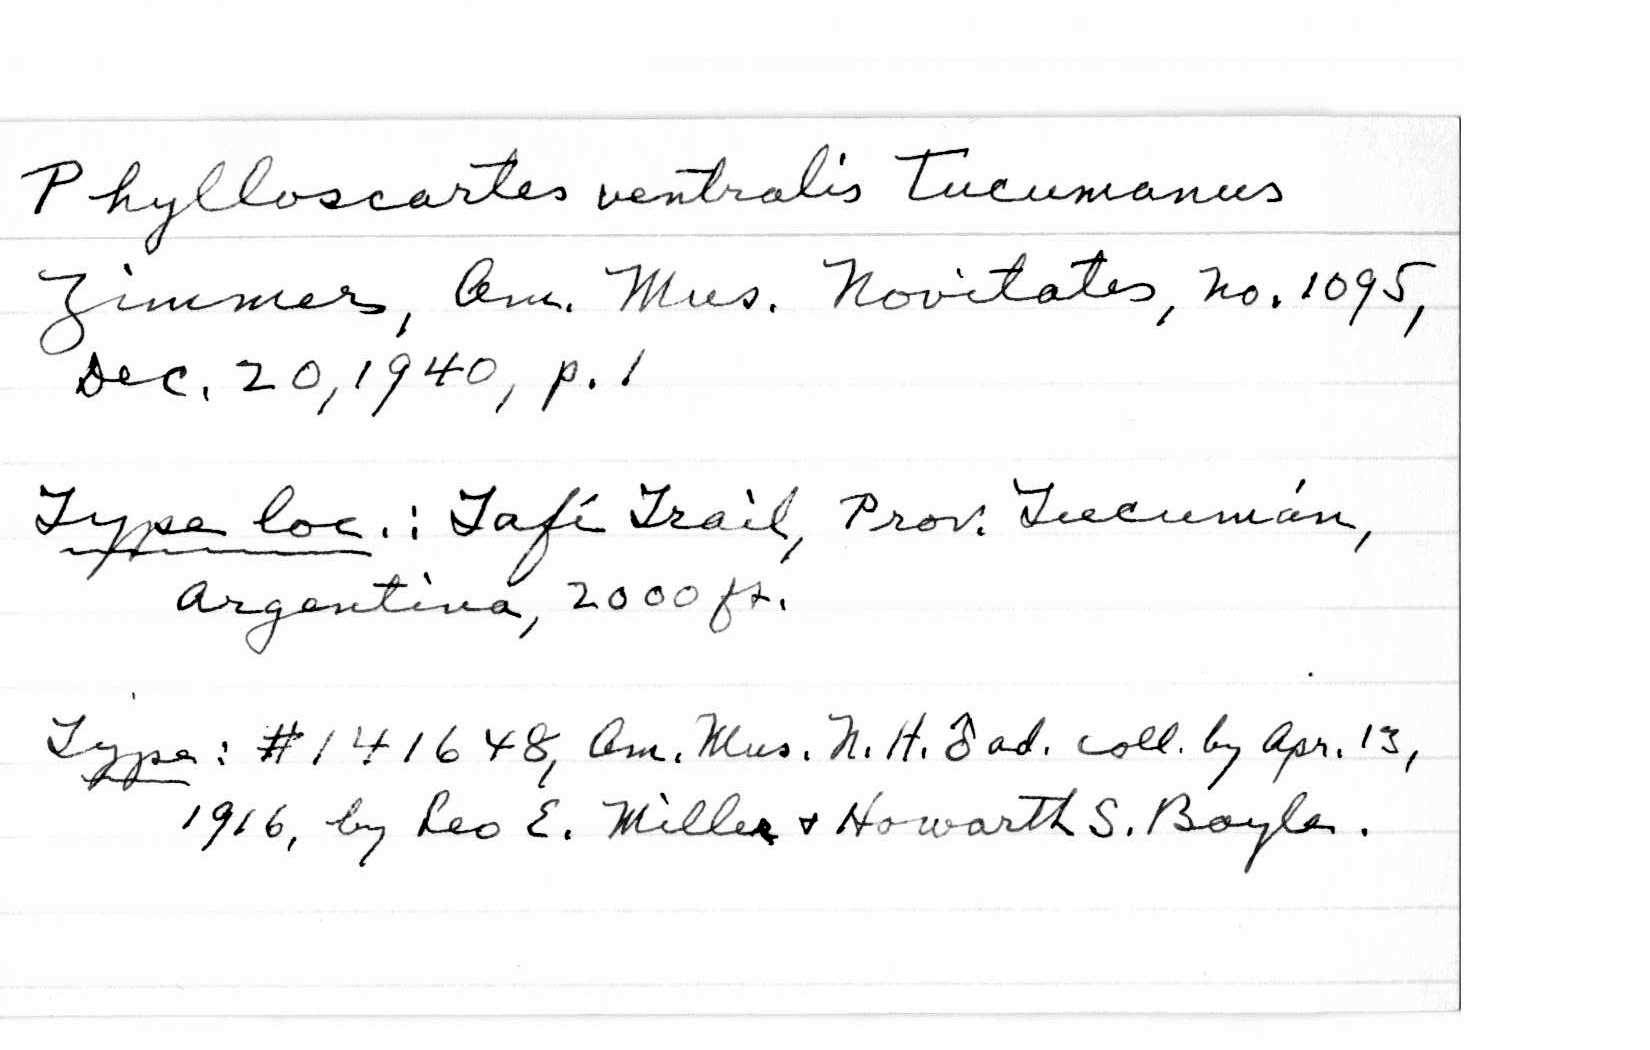 Phylloscartes ventralis tucumanus
Zimmer, Am. Mus. Novitates, no. 1095,
Dec. 20, 1940, p. 1
Type loc.: Tafí Trail, Prov. Tucumán,
Argentina, 2000 ft.
Type: #141648, Am. Mus. N. H. ♂ ad. coll. by Apr. 13,
1916, by Leo E. Miller & Howarth S. Boyle.